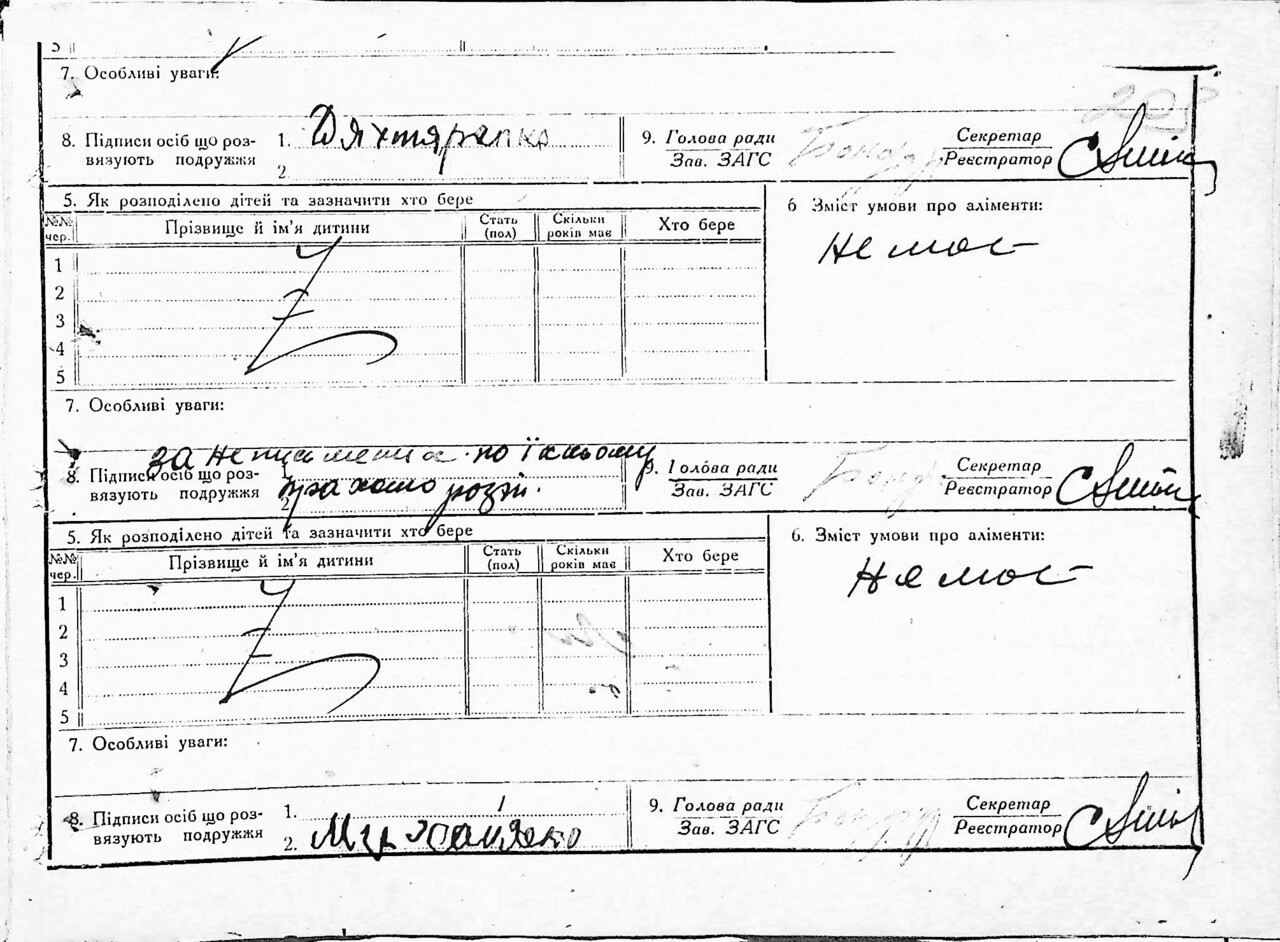 5
7. Особливі уваги:
8. Підписи осіб що роз-
вязують подружжя
1. Дяхтяренко
2.
9. Голова ради
Зав. ЗАГС
Секретар
Реєстратор
5. Як розподілено дітей та зазначити хто бере
№№ чер. Прізвище й ім'я дитини Стать (пол) Скільки років має Хто бере
1
2
3
4
5
6 Зміст умови про аліменти:
Не має
7. Особливі уваги:
за неписьменна по їхньому
8. Підписи осіб що роз-
вязують подружжя
1.
2.
9. Голова ради
Зав. ЗАГС
Секретар
Реєстратор
5. Як розподілено дітей та зазначити хто бере
№№ чер. Прізвище й ім'я дитини Стать (пол) Скільки років має Хто бере
1
2
3
4
5
6. Зміст умови про аліменти:
Не має
7. Особливі уваги:
8. Підписи осіб що роз-
вязують подружжя
1.
2.
9. Голова ради
Зав. ЗАГС
Секретар
Реєстратор